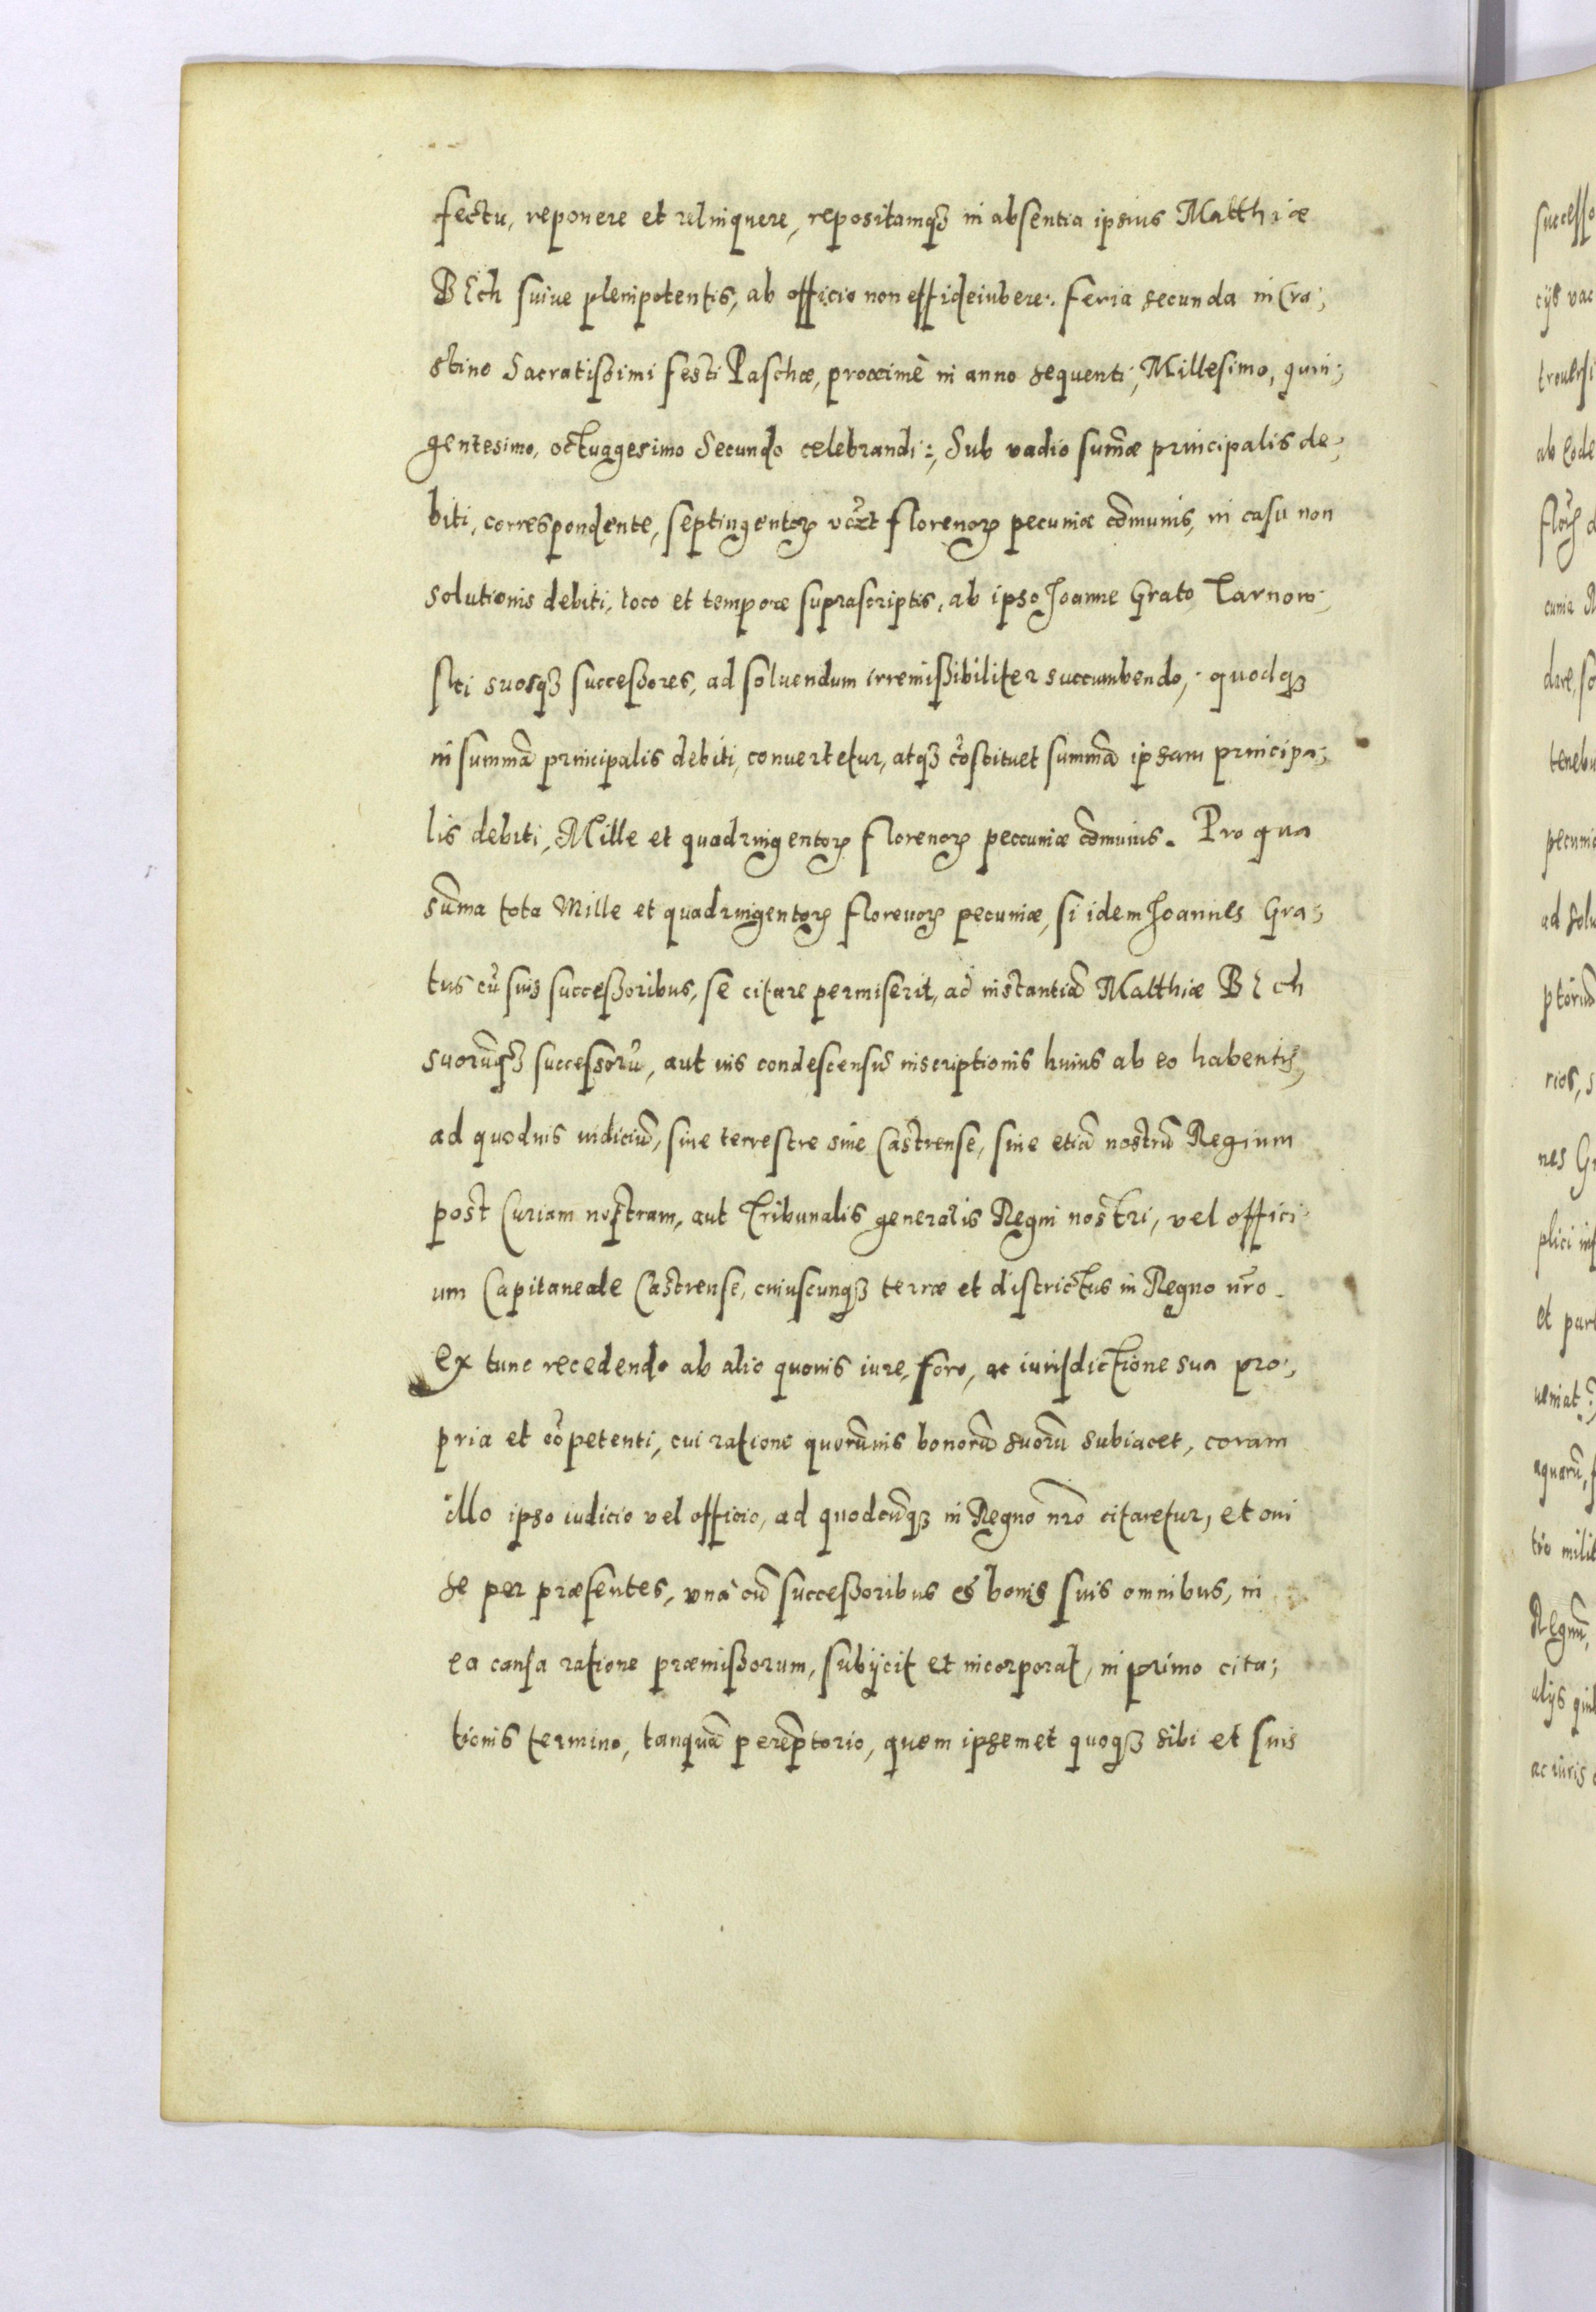 fectu, reponere et relinquere, repositamqꝫ in absentia ipsius Matthiæ
BEch suiue plenipotentis, ab officio non effideiubere. Feria secunda in Cra;
stino Sacratissimi Festi Paschæ, proximè in anno sequenti, Millesimo, quin;
gentesimo, octuagesimo Secundo celebrandi:, Sub vadio sum̃æ principalis de,
biti, correspondente, septingentoꝝ florenoꝝ pecuniæ com̃unis, in casu non
solutionis debiti, loco et tempore suprascriptis, ab ipso Joanne Grato Tarnow,
ski suosqꝫ successores, ad soluendum irremissibiliter succumbendo, quodqꝫ
in summã principalis debiti, conuertetur, atqꝫ cõstituet summã ipsam principa;
lis debiti, Mille et quadringentoꝝ florenoꝝ peccuniæ com̃unis. Pro qua
sum̃a tota Mille et quadringentoꝝ florenoꝝ pecuniæ, si idem Joannes Gra;
tus cũ suis successoribus, se citare permiserit, ad instantiã Matthiæ BEch
suorũqꝫ successorũ, aut ius condescensũ inscriptionis huius ab eo habentis,
ad quoduis iudiciũ, siue terrestre siue Castrense, siue etiã nostrũ Regium
post Curiam nostram, aut Tribunalis generalis Regni nostri, vel offici
um Capitaneale Castrense, cuiuscunqꝫ terræ et districtus in Regno nr̃o.
ex tunc recedendo ab alio quouis iure, foro, ac iurisdictione sua pro,
pria et cõpetenti, cui ratione quorũuis bonorũ suorũ subiacet, coram
illo ipso iudicio vel officio, ad quodcũqꝫ in Regno nr̃o citaretur, et cui
se per præsentes, vnà cũ successoribus & bonis suis omnibus, in
ea causa ratione præmissorum, subijcit et incorporat, in primo cita;
tionis termino, tanquã perem̃ptorio, quem ipsemet quoqꝫ sibi et suis